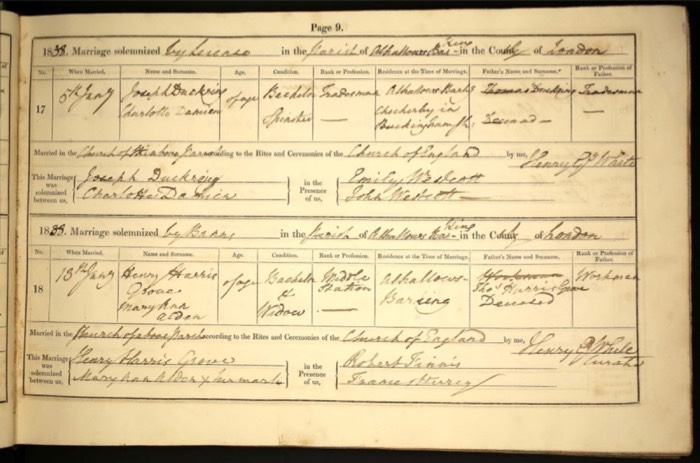 Page 9.
1838. Marriage solemnized by License in the Parish of Allhallows Barking in the County of London
No. When Married. Name and Surname. Age. Condition. Rank or Profession. Residence at the Time of Marriage. Father's Name and Surname. Rank or Profession of Father.
17 5th Jany Joseph Duckring of age Bachelor Tradesman Allhallows Barkg Thomas Duckring Tradesman
Charlotte Damien Spinster — in Buckinghamsh. Deceased — —
Married in the Church of the above Parish according to the Rites and Ceremonies of the Church of England by me, Henry White
This Marriage was solemnized between us, Joseph Duckring in the Presence of us, Emily Westcott
Charlotte Damien John Westcott
1838. Marriage solemnized by Banns in the Parish of Allhallows Barking in the County of London
No. When Married. Name and Surname. Age. Condition. Rank or Profession. Residence at the Time of Marriage. Father's Name and Surname. Rank or Profession of Father.
18 13th Jany Henry Harris Grove of age Bachelor Allhallows Barking Thos Harris Grove Workman
Mary Ann Alden & Widow — Deceased
Married in the Church of above Parish according to the Rites and Ceremonies of the Church of England by me, Henry White Curate
This Marriage was solemnized between us, Henry Harris Grove in the Presence of us, Robert Finnis
Mary Ann Alden x her mark